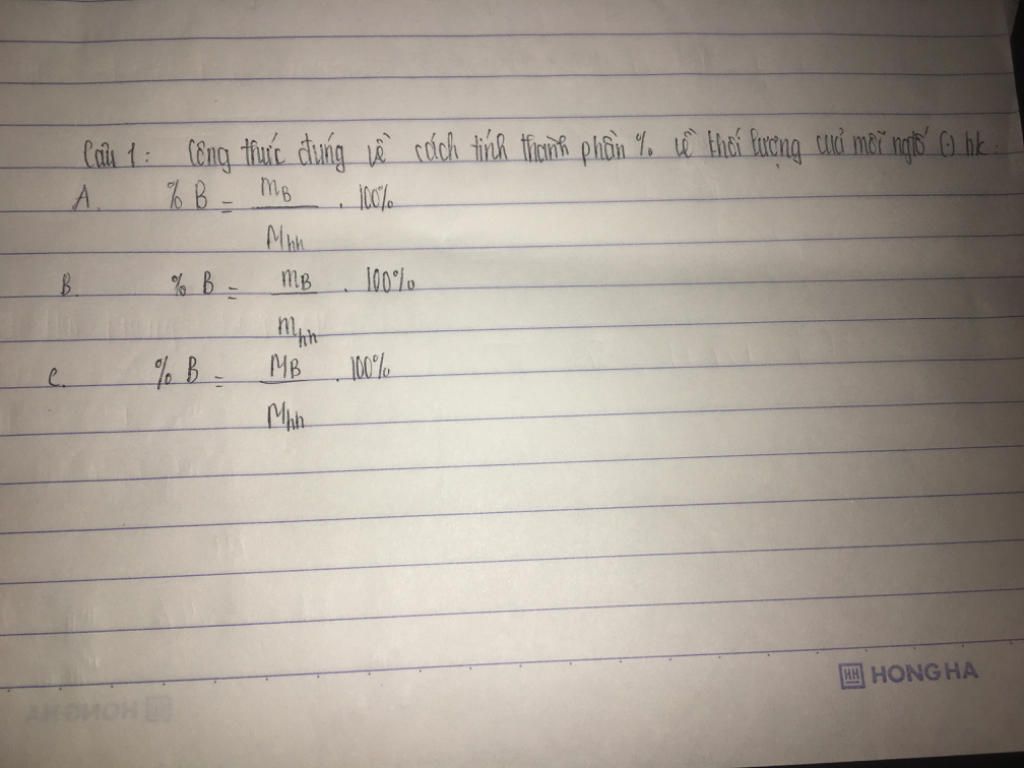 Câu 1: Công thức đúng về cách tính thành phần % về khối lượng của mỗi ngtố (.) hk.
A. % B = mB / Mhh . 100%
B. % B = mB / mhh . 100%
C. % B = MB / Mhh . 100%
HH HONG HA